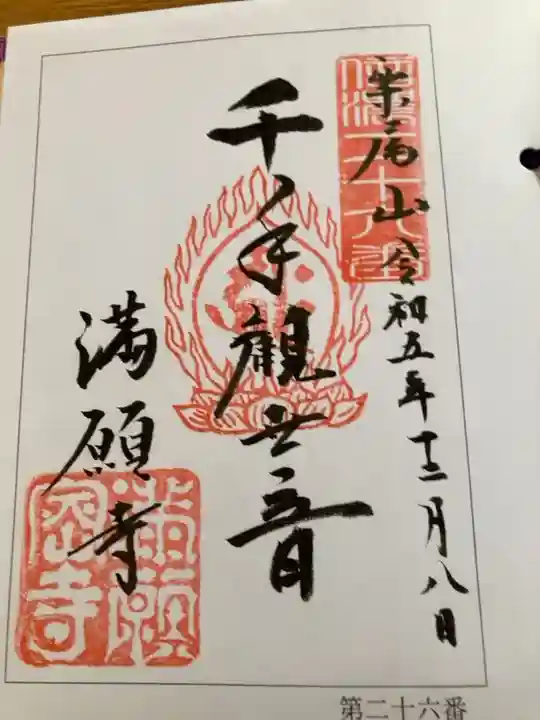 栗尾山 令和五年十二月八日
千手觀世音
満願寺
信濃二十六番
満願密寺
第二十六番